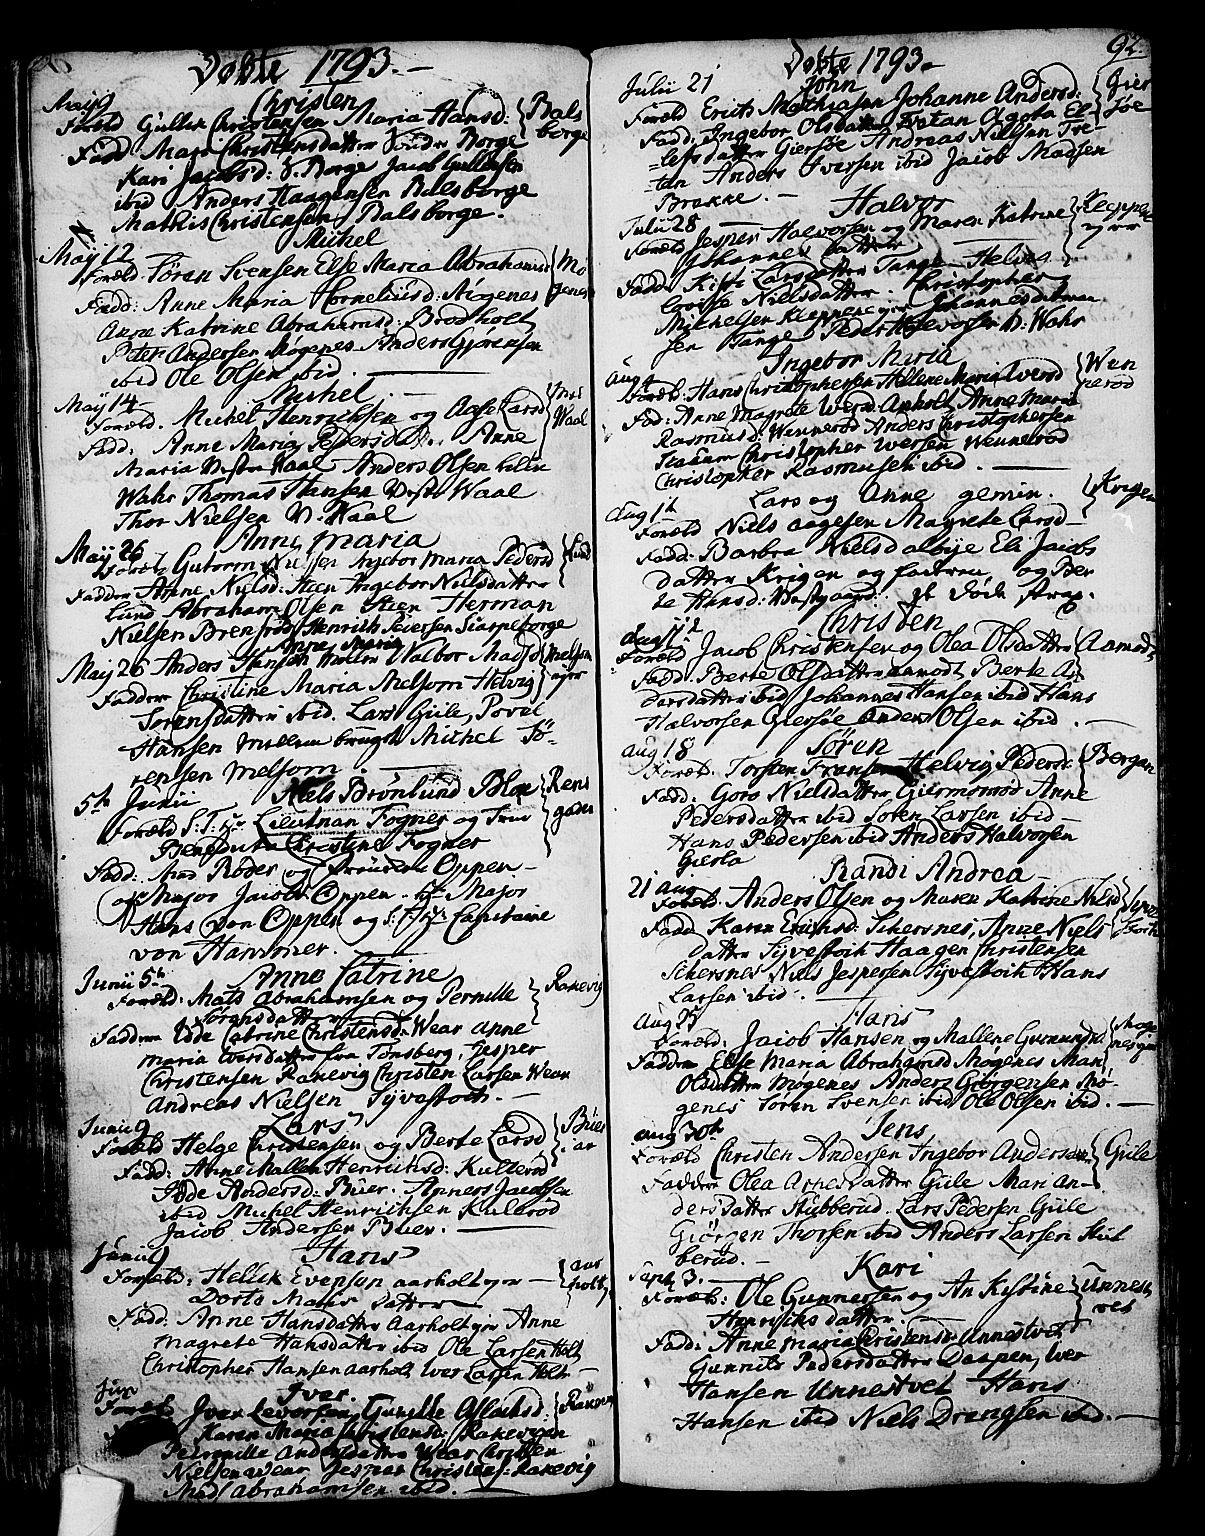 Døbte 1793.
Maij 9 Christen
Foræld Gullik Christensen Maria Hansd: Bals
Fadd Maren Christensdatter Søndre Borge borge
Kari Jacobsd: S. Borge Jacob Gullensen
ibid Anders Haagensen Balsborge
Mathis Christensen Balsborge.
Michel
Maij 12
Foræld Søren Svensen Else Maria Abrahamsd Mo
Fadd: Anne Maria Corneliusd: Møgenes genes
Anne Katrine Abrahamsd: Brodholt
Peter Andersen Møgenes Anders Gjørensen
ibid Ole Olsen ibid.
Michel
Maij 14
Foræld. Michel Henrichsen og Aase Larsd
Fadd: Anne Maria Pedersdatter Anne Waal
Maria Vestre Waal Anders Olsen
Wahr Thomas Hansen Vestre Waal
Thor Nielsen V: Waal
Anne Maria
Maij 26
Foræld Gutorm Nielsen Ingebor Maria Pedersd Lund
Faddere Anne Nielsd: Steen Ingebor Nielsdatter
Lund Abraham Olsen Steen Herman
Nielsen Brenrød Henrich Iversen Skarpeborge
Anne Maria
Maij 26 Anders Hansen Mellem Walbor Madsd Melsom
Faddere Christine Maria Melsom Helvig
Sørensdatter ibid. Lars Giile, Povel
Hansen Mellem brugt Michel Sø-
rensen Melsom.
5te Junii Niels Brønlund Blox Rens
Foræld S:T: Hr Lieutnan Fogner og Frue gader
Benedicta Christine Fogner
Fadd: Mad Røder og Frøniken Oppen
Major Jacob Oppen. Hr Major
Hans von Oppen og S:T: Hr Capitaine
von Hammer.
Junii 5te Anne Catrine
Foræld: Mats Abrahamsen og Pernille Rakevig
Sørensdatter
Faddere Edde Catrine Christensd: Wear Anne
Maria Iversdatter fra Tønsberg, Jesper
Christensen Rakevig Christen Larsen Wear
Andreas Nielsen Syvestoch.
Lars
Junii 9
Foræld Helge Christensen og Berte Larsd Büer
Fadd: Anne Mallen Henrichsd: Kullerød
Edde Andersd: Büer. Asmers Jacobsen
ibid Michel Henrichsen Kullerød
Jacob Andersen Büer.
Junii 9 Hans
Foræld: Hellik Evensen Aarholt eyer aar
Dorte Madsdatter holt
Fadd: Anne Hansdatter Aarholt eyer Anne
Magrete Hansdatter ibid Ole Larsen Holt
Christopher Hansen Aarholt Iver Larsen Holt
Jun Iver
Foræld Iver Leversen Gunille Asl
Karen Maria Christensd: Rakevigen
Pernille Andersdatter Wear Christen
Nielsen Wear Jesper Christens: Rakevig
Mads Abrahamsen ibid.
92.
Døbte 1793.
Julii 21 John
Foræld Erich Mathiasen Johanne Andersd: Gier
Fadd: Ingebor Olsdatter Tretan Ageta El- søe
lefsdatter Giersøe Andreas Nielsen Tre-
tan Anders Iversen ibid Jacob Madsen
Brække.
Julii 28 Halvor
Foræld Jesper Halvorsen og Maren Katrine Kleppen
Johannesdatter eyer
Fadd: Kisti Larsdatter Tange Helvig
Nielsdatter. Christopher
Mikkelsen Kleppene Johannes
sen Tange Peder Halvorsen N: Wahr
Ingebor Maria
Aug 4
Foræld: Hans Christophersen Hellene Maria Iversd Wen
Fad: Anne Magrete Iversd: Apholt Anne Maria nerød
Rasmusd: Wennerød Anders Christophersen
Staaum Christopher Iversen Wennerød
Christopher Rasmusen ibid.
Lars og Anne gemin. Krigen
Aug 11
Foræld Niels Aagesen Magrete Larsd
Fadd: Barbra Nielsd Albye Eli Jacobs
datter Krigen og faderen og Ber
te Hansd: Vestgaard. Døde strax.
Christen
Aug 11te
Foræld Jacob Christensen og Olea Olsdatter Aamodt
Fadd: Berte Olsdatter Aamodt Berte A-
dersdatter ibid Johannes Hansen ibid Hans
Halvorsen Giersøe Anders Olsen ibid.
Aug 18 Søren
Foræld. Torsten Fransen Helvig Pedersd: Bergan
Fadd: Goro Nielsdatter Giermonrød Anne
Pedersdatter ibid Soren Larsen ibid
Hans Pedersen ibid Anders Halvorsen
Gierla
Randi Andrea
21 Aug
Foræld Anders Olsen og Maren Katrine Nielsd Syve
Fadd Karen Erichsd: Schersnes, Anne Niels stoch
datter Syvestoch Haagen Christensen
Schersnes Niels Jespersen Syvestoch Hans
Larsen ibid.
Aug 25 Hans
Foræld: Jacob Hansen og Mallene Gunnundsd Moge
Faddere Else Maria Abrahamsd Møgenes Mari
Olsdatter Møgenes Anders Giørgensen Mø-
genes Søren Svensen ibid Ole Olsen ibid.
Aug 30te Jens
Foræld Christen Andersen Ingebor Andersdatter Giile
Faddere Olea Aspersdatter Giile Mari An-
dersdatter Stubberud. Lars Pedersen Giile
Giörgen Thorsen ibid Anders Larsen Stub
berud.
Sept 3. Kari
Foræld: Ole Gunnersen og An Kistine Unnest
Henrichsdatter vet
Fadd: Anne Maria Christensd: Unnestvet
Gunnild Pedersdatter Daapen, Iver
Hansen Unnestvet Hans
Hansen ibid Niels Drengsen ibid.